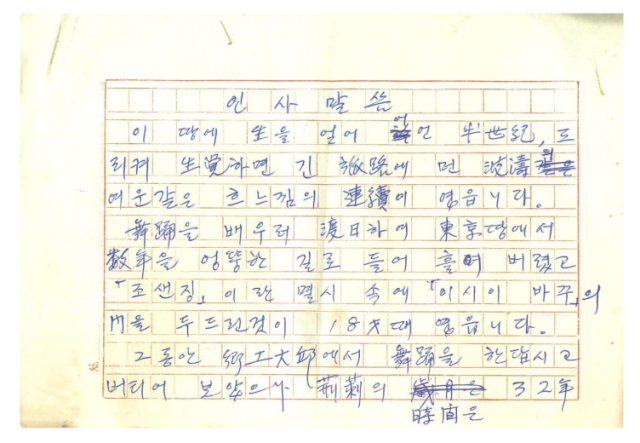 인사말씀
이 땅에 生을 얻어 어언 半世紀, 도
리켜 生覺하면 긴 旅路에 먼 波濤의
여운같은 흐느낌의 連續이 였읍니다.
舞踊을 배우러 渡日하여 東京땅에서
数年을 엉뚱한 길로 들어 흘려 버렸고
「조센징」이란 멸시 속에 「이시이 바꾸」의
門을 두드린것이 18才때 였읍니다.
그동안 鄕土大邱에서 舞踊을 한답시고
버티어 보았으나 荊莿의 歲月은 32年
時間은